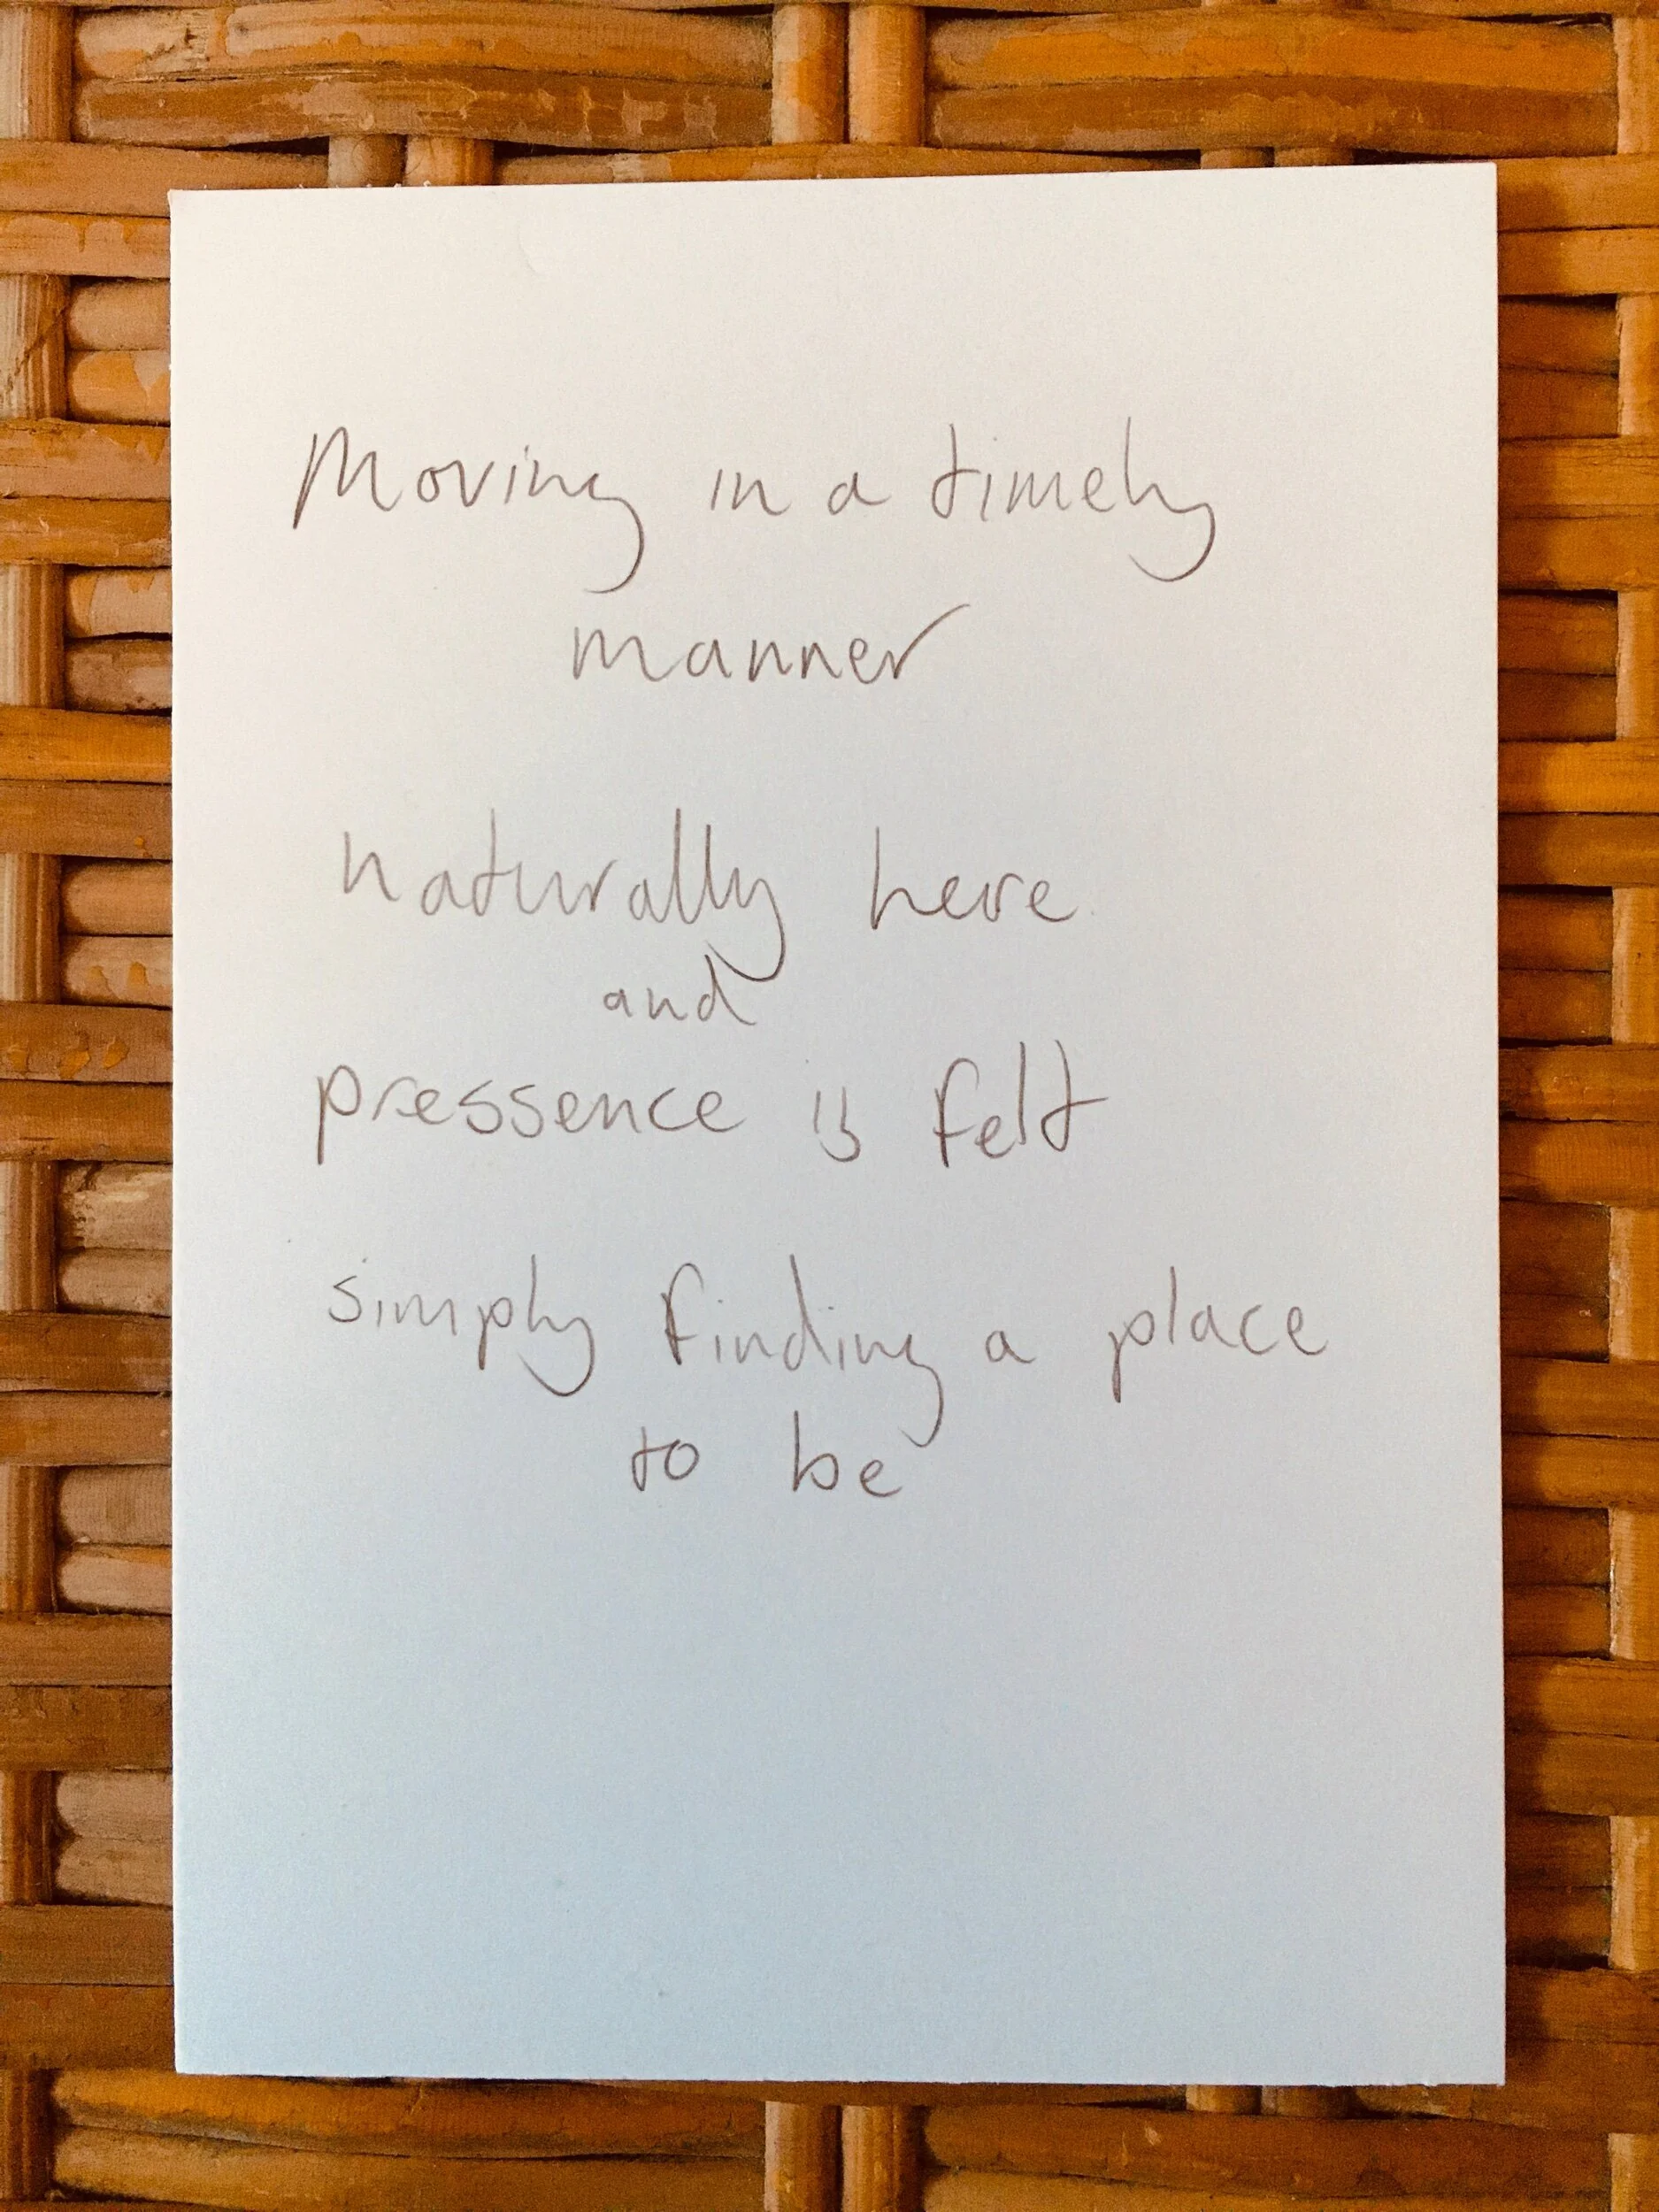 Moving in a timely
manner
naturally here
and
pressence is felt
simply finding a place
to be